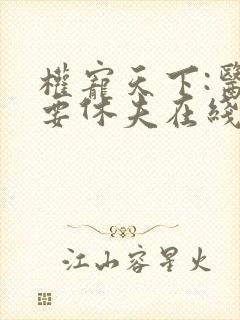 權寵天下:醫
要休夫在綫
江山容星火